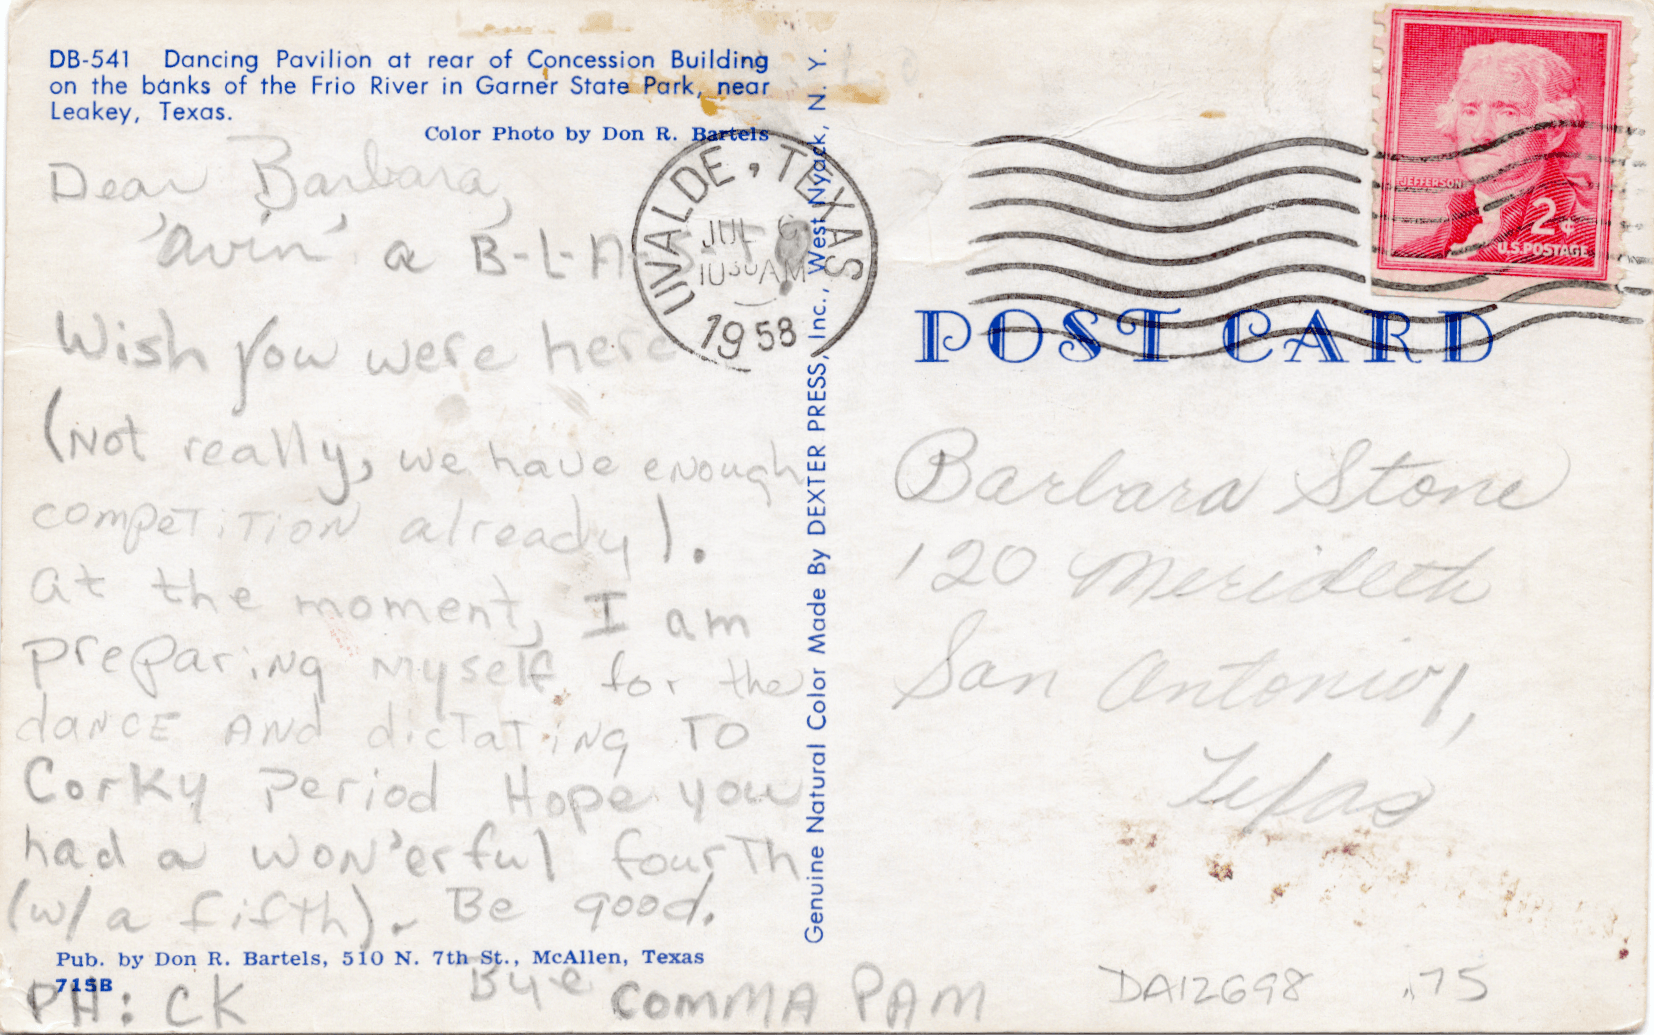 DB-541 Dancing Pavilion at rear of Concession Building
on the banks of the Frio River in Garner State Park, near
Leakey, Texas.
Color Photo by Don R. Bartels
Dear Barbara,
'avin' a B-L-A-S-T
Wish you were here
(Not really, we have enough
competition already).
at the moment, I am
preparing myself for the
dance and dictating to
Corky period Hope you
had a won'erful fourth
(w/a fifth). Be good.
Pub. by Don R. Bartels, 510 N. 7th St., McAllen, Texas
71SB
PH: CK Bye comma PAM
Genuine Natural Color Made By DEXTER PRESS, Inc., West Nyack, N. Y.
UVALDE, TEXAS
JUL 6
10 30 AM
1958
JEFFERSON
2¢
U.S. POSTAGE
POST CARD
Barbara Stone
120 Merideth
San Antonio,
Texas
DA12698 .75